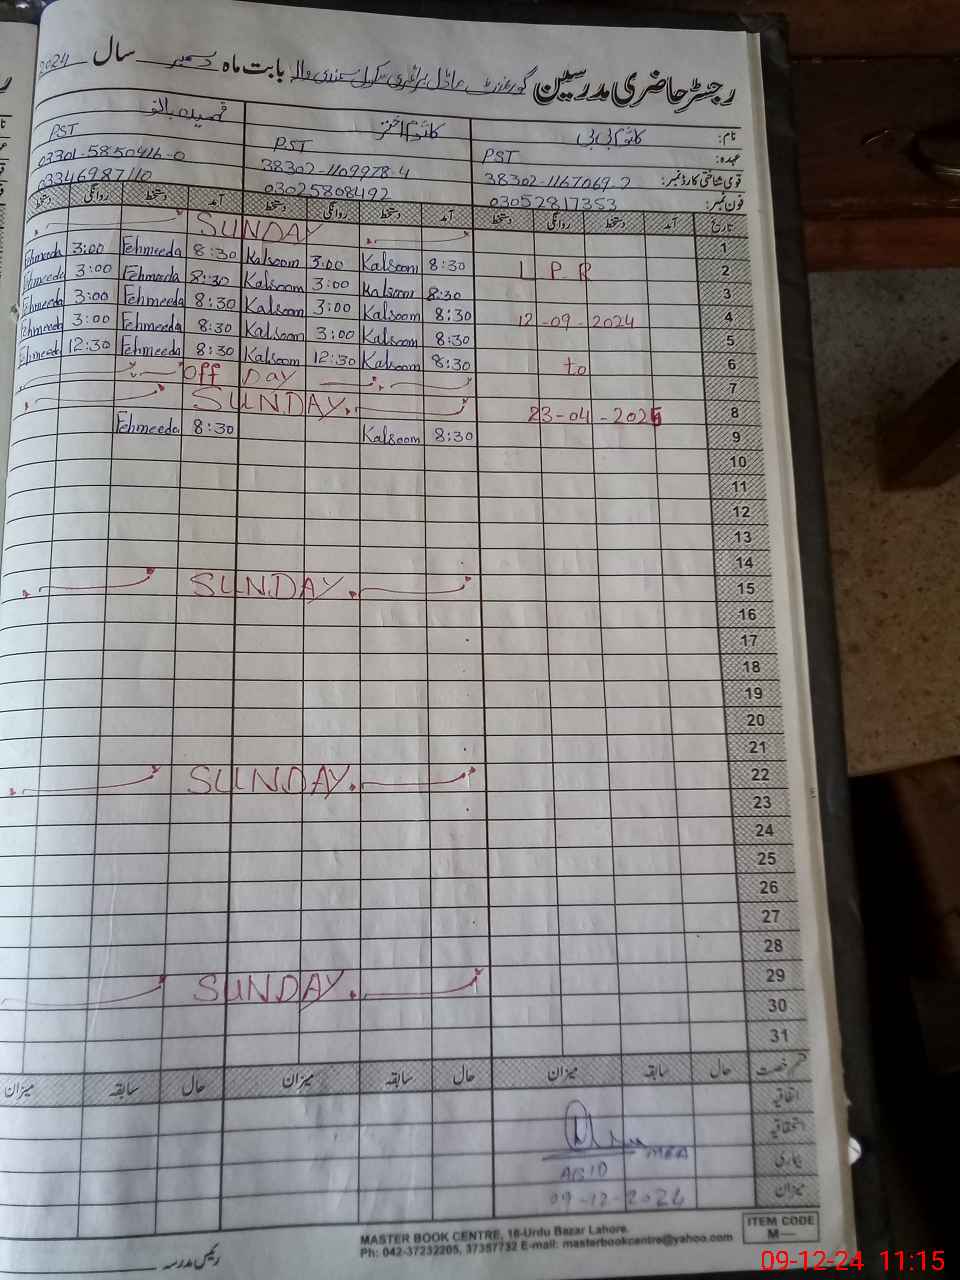 رجسٹر حاضری مدرسین گورنمنٹ ماڈل پرائمری سکول سندی والہ بابت ماہ دسمبر سال 2024
نام: کلثوم بی بی کلثوم اختر فہمیدہ بانو
عہدہ: PST PST PST
قومی شناختی کارڈ نمبر: 38302-1167069-2 38302-1109978-4 03301-5850416-0
فون نمبر: 03052817353 03025808492 03346987110
تاریخ آمد دستخط روانگی دستخط آمد دستخط روانگی دستخط آمد دستخط روانگی دستخط
1 SUNDAY
2 L P R 8:30 Kalsoom 3:00 Kalsoom 8:30 Fehmeeda 3:00 Fehmeeda
3 8:30 Kalsoom 3:00 Kalsoom 8:30 Fehmeeda 3:00 Fehmeeda
4 12-09-2024 8:30 Kalsoom 3:00 Kalsoom 8:30 Fehmeeda 3:00 Fehmeeda
5 8:30 Kalsoom 3:00 Kalsoom 8:30 Fehmeeda 3:00 Fehmeeda
6 to 8:30 Kalsoom 12:30 Kalsoom 8:30 Fehmeeda 12:30 Fehmeeda
7 Off Day
8 23-04-2025 SUNDAY
9 8:30 Kalsoom 8:30 Fehmeeda
10
11
12
13
14
15 SUNDAY
16
17
18
19
20
21
22 SUNDAY
23
24
25
26
27
28
29 SUNDAY
30
31
قسم رخصت حال سابقہ میزان حال سابقہ میزان حال سابقہ میزان
اتفاقیہ
استحقاقیہ
بیماری MEA
ABID
میزان 09-12-2024
رئیس مدرسہ
MASTER BOOK CENTRE, 16-Urdu Bazar Lahore.
Ph: 042-37232205, 37357732 E-mail: masterbookcentre@yahoo.com
ITEM CODE
M—
09-12-24 11:15